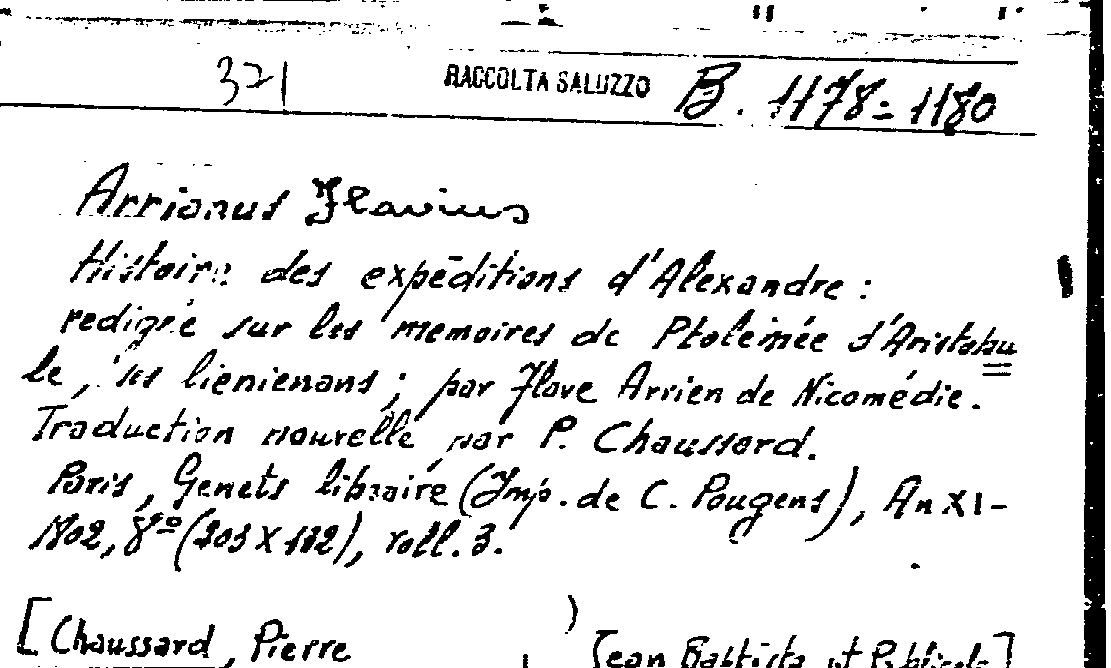 371 RACCOLTA SALUZZO B. 1178-1180
Arrianus Flavius
Histoire des expéditions d'Alexandre :
redigée sur les memoires de Ptolémée d'Aristobu
le, ses lienienans ; par Flave Arrien de Nicomédie.
Traduction nouvelle par P. Chaussard.
Paris, Genets libraire (Imp. de C. Pougens), An XI-
1802, 8º ( X ), voll. 3.
[Chaussard, Pierre ) Jean Baptiste et Publicole]